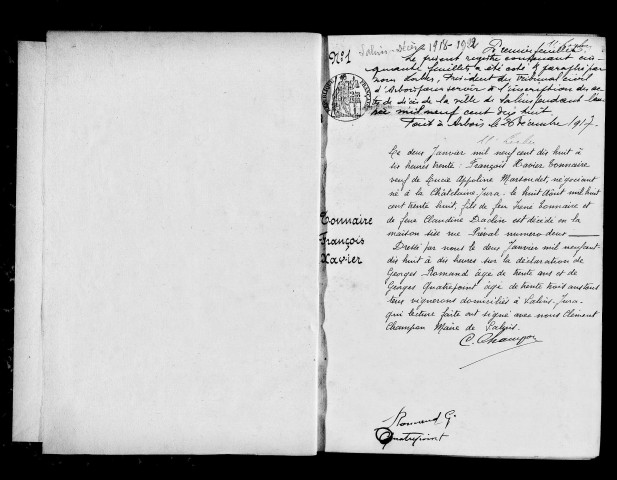 N° 1
Salins - Décès 1918-1922
Premier feuillet
Le present registre contenant cin-
quante feuillets a été coté & paraphé par
nous Président du Tribunal civil
d'Arbois pour servir à l'inscription des ac-
tes de décès de la ville de Salins pendant l'an-
née mil neuf cent dix huit
Fait à Arbois le 26 Décembre 1917
Tonnaire
François
Xavier
Le deux Janvier mil neuf cent dix huit à
six heures trente : François Xavier Tonnaire
veuf de Lucie Appoline Martoudet, négociant
né à la Châtelaine Jura. le huit Août mil huit
cent trente huit, fils de feu Irené Tonnaire et
de feue Claudine Draclin est décédé en la
maison sise rue Préval numero deux
Dressé par nous le deux Janvier mil neuf cent
dix huit à dix heures sur la déclaration de
Georges Romand âgé de trente ans et de
Georges Quatrepoint âgé de trente trois ans tous
deux vignerons domiciliés à Salins-Jura.
qui lecture faite ont signé avec nous Clément
Champon Maire de Salins.
C. Champon
Romand G.
Quatrepoint